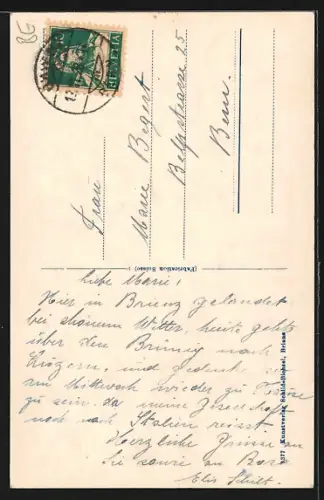 HELVETIA
Frau
Marie Begert
Belpstrasse 25
Bern.
(Fabrication Suisse)
9577 Kunstverlag Schild-Bichsel, Brienz
Liebe Marie!
Hier in Brienz gelandet
bei schönem Wetter, heute geht's
über den Brünig nach
Luzern, und gedenke
am Mittwoch wieder zu Hause
zu sein, da meine Gesellschaft
noch nach Italien reisst.
Herzliche Grüsse an
Sie sowie an
Elis
86